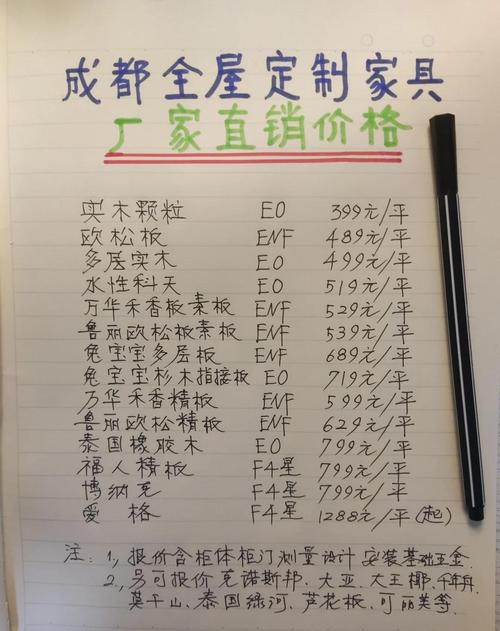 成都全屋定制家具
厂家直销价格
实木颗粒 E0 399元/平
欧松板 ENF 489元/平
多层实木 E0 499元/平
水性科天 E0 519元/平
万华禾香板素板 ENF 529元/平
鲁丽欧松板素板 ENF 539元/平
兔宝宝多层板 ENF 689元/平
兔宝宝杉木指接板 E0 719元/平
万华禾香精板 ENF 599元/平
鲁丽欧松精板 ENF 629元/平
泰国橡胶木 E0 799元/平
福人精板 F4星 799元/平
博纳克 F4星 799元/平
爱格 F4星 1288元/平(起)
注:1, 报价含柜体柜门测量设计安装基础五金.
2, 另可报价克诺斯邦、大亚、大王椰、千年舟、
莫干山、泰国绿河、芦花板、可丽芙等.